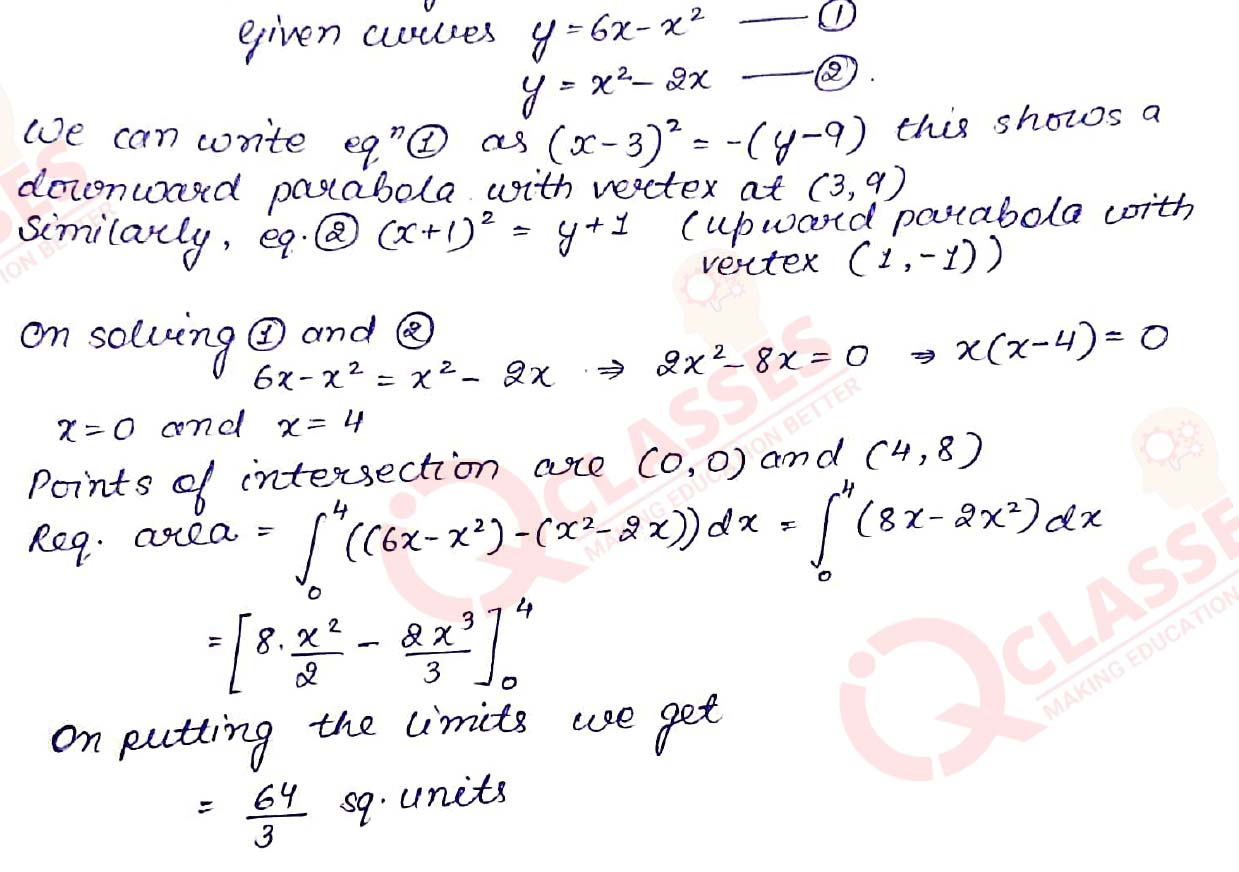 Given curves y = 6x - x² — ①
y = x² - 2x — ②.
We can write eqⁿ ① as (x-3)² = -(y-9) this shows a
downward parabola with vertex at (3,9)
Similarly, eq. ② (x+1)² = y+1 (upward parabola with
vertex (1,-1))
On solving ① and ②
6x - x² = x² - 2x ⇒ 2x² - 8x = 0 ⇒ x(x-4) = 0
x=0 and x=4
Points of intersection are (0,0) and (4,8)
Req. area = ∫₀⁴ ((6x-x²)-(x²-2x))dx = ∫₀⁴ (8x-2x²)dx
= [8·x²/2 - 2x³/3]₀⁴
On putting the limits we get
= 64/3 sq. units
CLASSES
MAKING EDUCATION BETTER